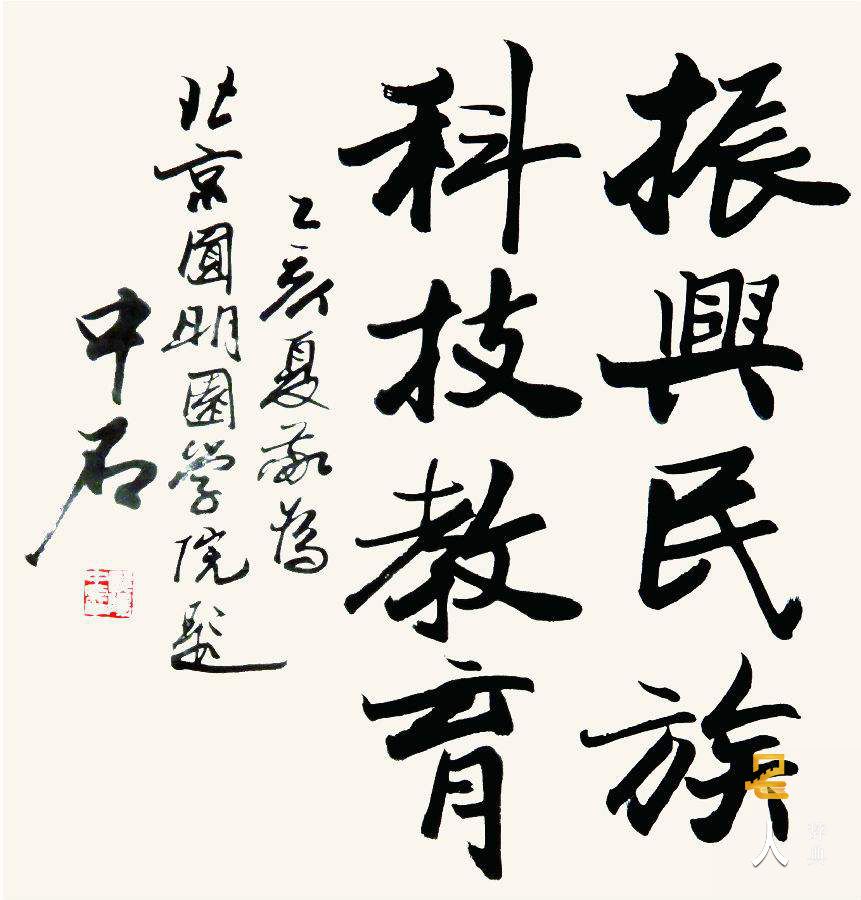 振興民族
科技教育
乙亥夏敬為
北京圓明園學院題
中石
人
辞典